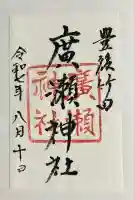 豊後竹田
廣瀬神社
廣瀬
神社
令和七年八月十日